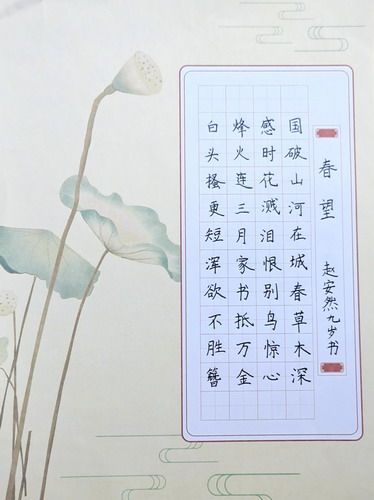 春望
赵安然九岁书
国破山河在城春草木深
感时花溅泪恨别鸟惊心
烽火连三月家书抵万金
白头搔更短浑欲不胜簪